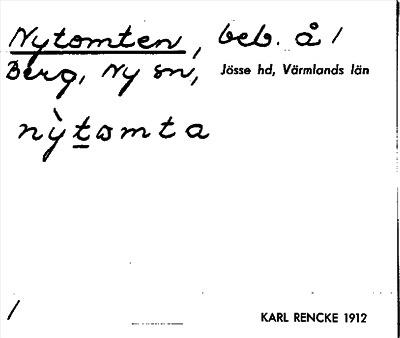 Nytomten, beb. å /
Berg, Ny sn, Jösse hd, Värmlands län
nỳt̲ωmta
/
KARL RENCKE 1912